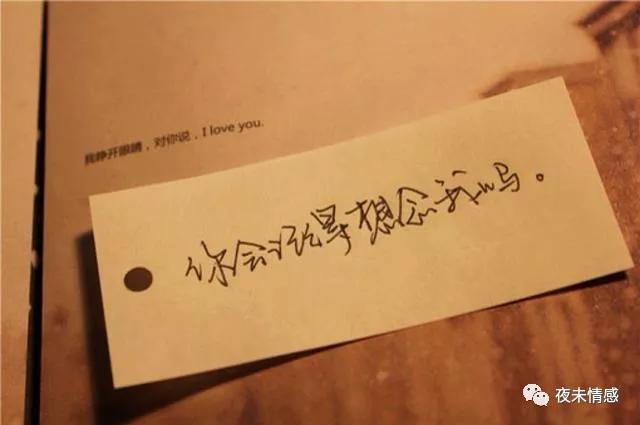 我睁开眼睛，对你说，I love you.
你会沿途想念我吗。
夜未情感